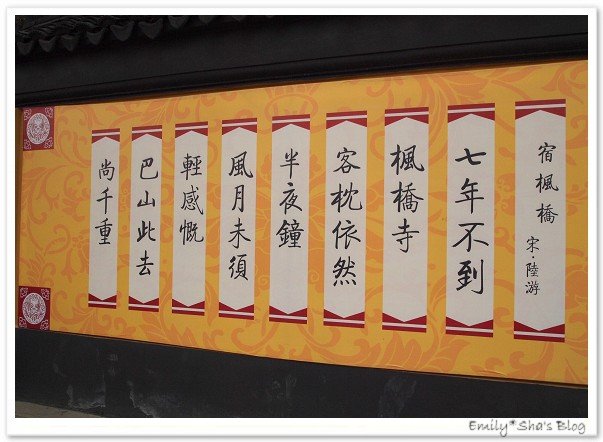 宿楓橋
宋·陸游
七年不到
楓橋寺
客枕依然
半夜鐘
風月未須
輕感慨
巴山此去
尚千重
Emily*Sha's Blog